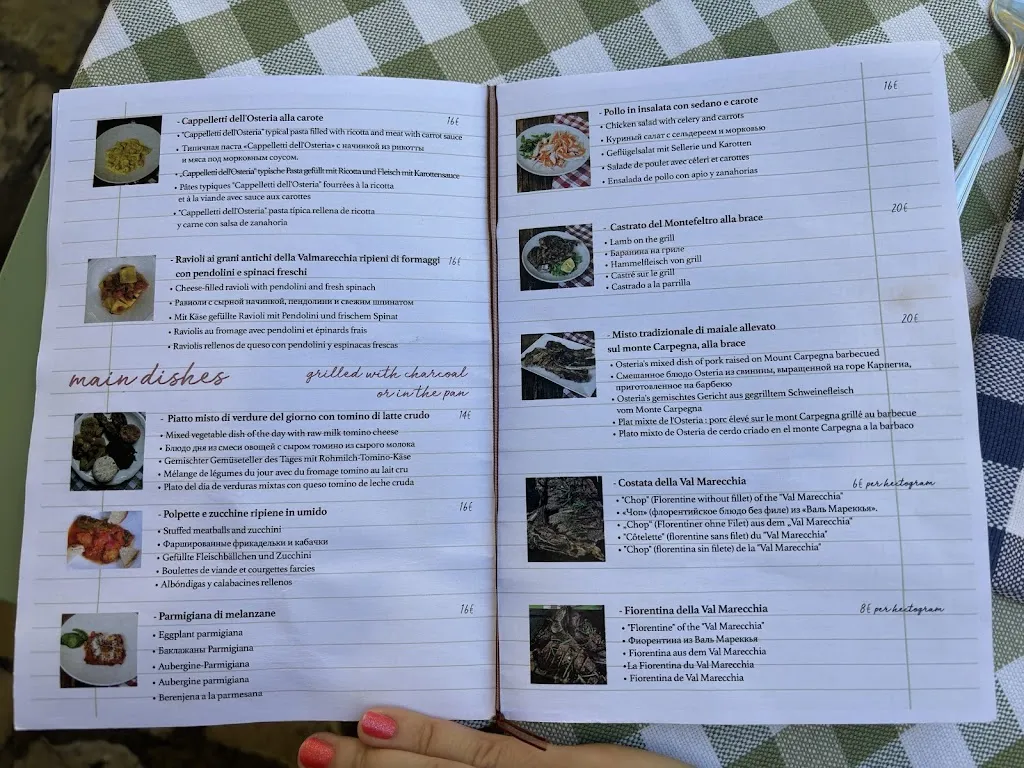 - Cappelletti dell'Osteria alla carote 16€
• "Cappelletti dell'Osteria" typical pasta filled with ricotta and meat with carrot sauce
• Типичная паста «Cappelletti dell'Osteria» с начинкой из рикотты
и мяса под морковным соусом.
• „Cappelletti dell'Osteria" typische Pasta gefüllt mit Ricotta und Fleisch mit Karottensauce
• Pâtes typiques "Cappelletti dell'Osteria" fourrées à la ricotta
et à la viande avec sauce aux carottes
• "Cappelletti dell'Osteria" pasta típica rellena de ricotta
y carne con salsa de zanahoria
- Ravioli ai grani antichi della Valmarecchia ripieni di formaggi 16€
con pendolini e spinaci freschi
• Cheese-filled ravioli with pendolini and fresh spinach
• Равиоли с сырной начинкой, пендолини и свежим шпинатом
• Mit Käse gefüllte Ravioli mit Pendolini und frischem Spinat
• Raviolis au fromage avec pendolini et épinards frais
• Raviolis rellenos de queso con pendolini y espinacas frescas
main dishes grilled with charcoal
or in the pan
- Piatto misto di verdure del giorno con tomino di latte crudo 14€
• Mixed vegetable dish of the day with raw milk tomino cheese
• Блюдо дня из смеси овощей с сыром томино из сырого молока
• Gemischter Gemüseteller des Tages mit Rohmilch-Tomino-Käse
• Mélange de légumes du jour avec du fromage tomino au lait cru
• Plato del día de verduras mixtas con queso tomino de leche cruda
- Polpette e zucchine ripiene in umido 16€
• Stuffed meatballs and zucchini
• Фаршированные фрикадельки и кабачки
• Gefüllte Fleischbällchen und Zucchini
• Boulettes de viande et courgettes farcies
• Albóndigas y calabacines rellenos
- Parmigiana di melanzane 16€
• Eggplant parmigiana
• Баклажаны Parmigiana
• Aubergine-Parmigiana
• Aubergine parmigiana
• Berenjena a la parmesana
- Pollo in insalata con sedano e carote 16€
• Chicken salad with celery and carrots
• Куриный салат с сельдереем и морковью
• Geflügelsalat mit Sellerie und Karotten
• Salade de poulet avec céleri et carottes
• Ensalada de pollo con apio y zanahorias
- Castrato del Montefeltro alla brace 20€
• Lamb on the grill
• Баранина на гриле
• Hammelfleisch von grill
• Castré sur le grill
• Castrado a la parrilla
- Misto tradizionale di maiale allevato 20€
sul monte Carpegna, alla brace
• Osteria's mixed dish of pork raised on Mount Carpegna barbecued
• Смешанное блюдо Osteria из свинины, выращенной на горе Карпегна,
приготовленное на барбекю
• Osteria's gemischtes Gericht aus gegrilltem Schweinefleisch
vom Monte Carpegna
• Plat mixte de l'Osteria : porc élevé sur le mont Carpegna grillé au barbecue
• Plato mixto de Osteria de cerdo criado en el monte Carpegna a la barbaco
- Costata della Val Marecchia 6€ per hectogram
• "Chop" (Florentine without fillet) of the "Val Marecchia"
• «Чоп» (флорентийское блюдо без филе) из «Валь Мареккья».
• „Chop" (Florentiner ohne Filet) aus dem „Val Marecchia"
• "Côtelette" (florentine sans filet) du "Val Marecchia"
• "Chop" (florentina sin filete) de la "Val Marecchia"
- Fiorentina della Val Marecchia 8€ per hectogram
• "Florentine" of the "Val Marecchia"
• Фиорентина из Валь Мареккья
• Fiorentina aus dem Val Marecchia
• La Fiorentina du Val Marecchia
• Fiorentina de Val Marecchia